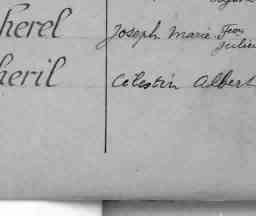 herel Joseph Marie Jean
Julien
heril Célestin Albert